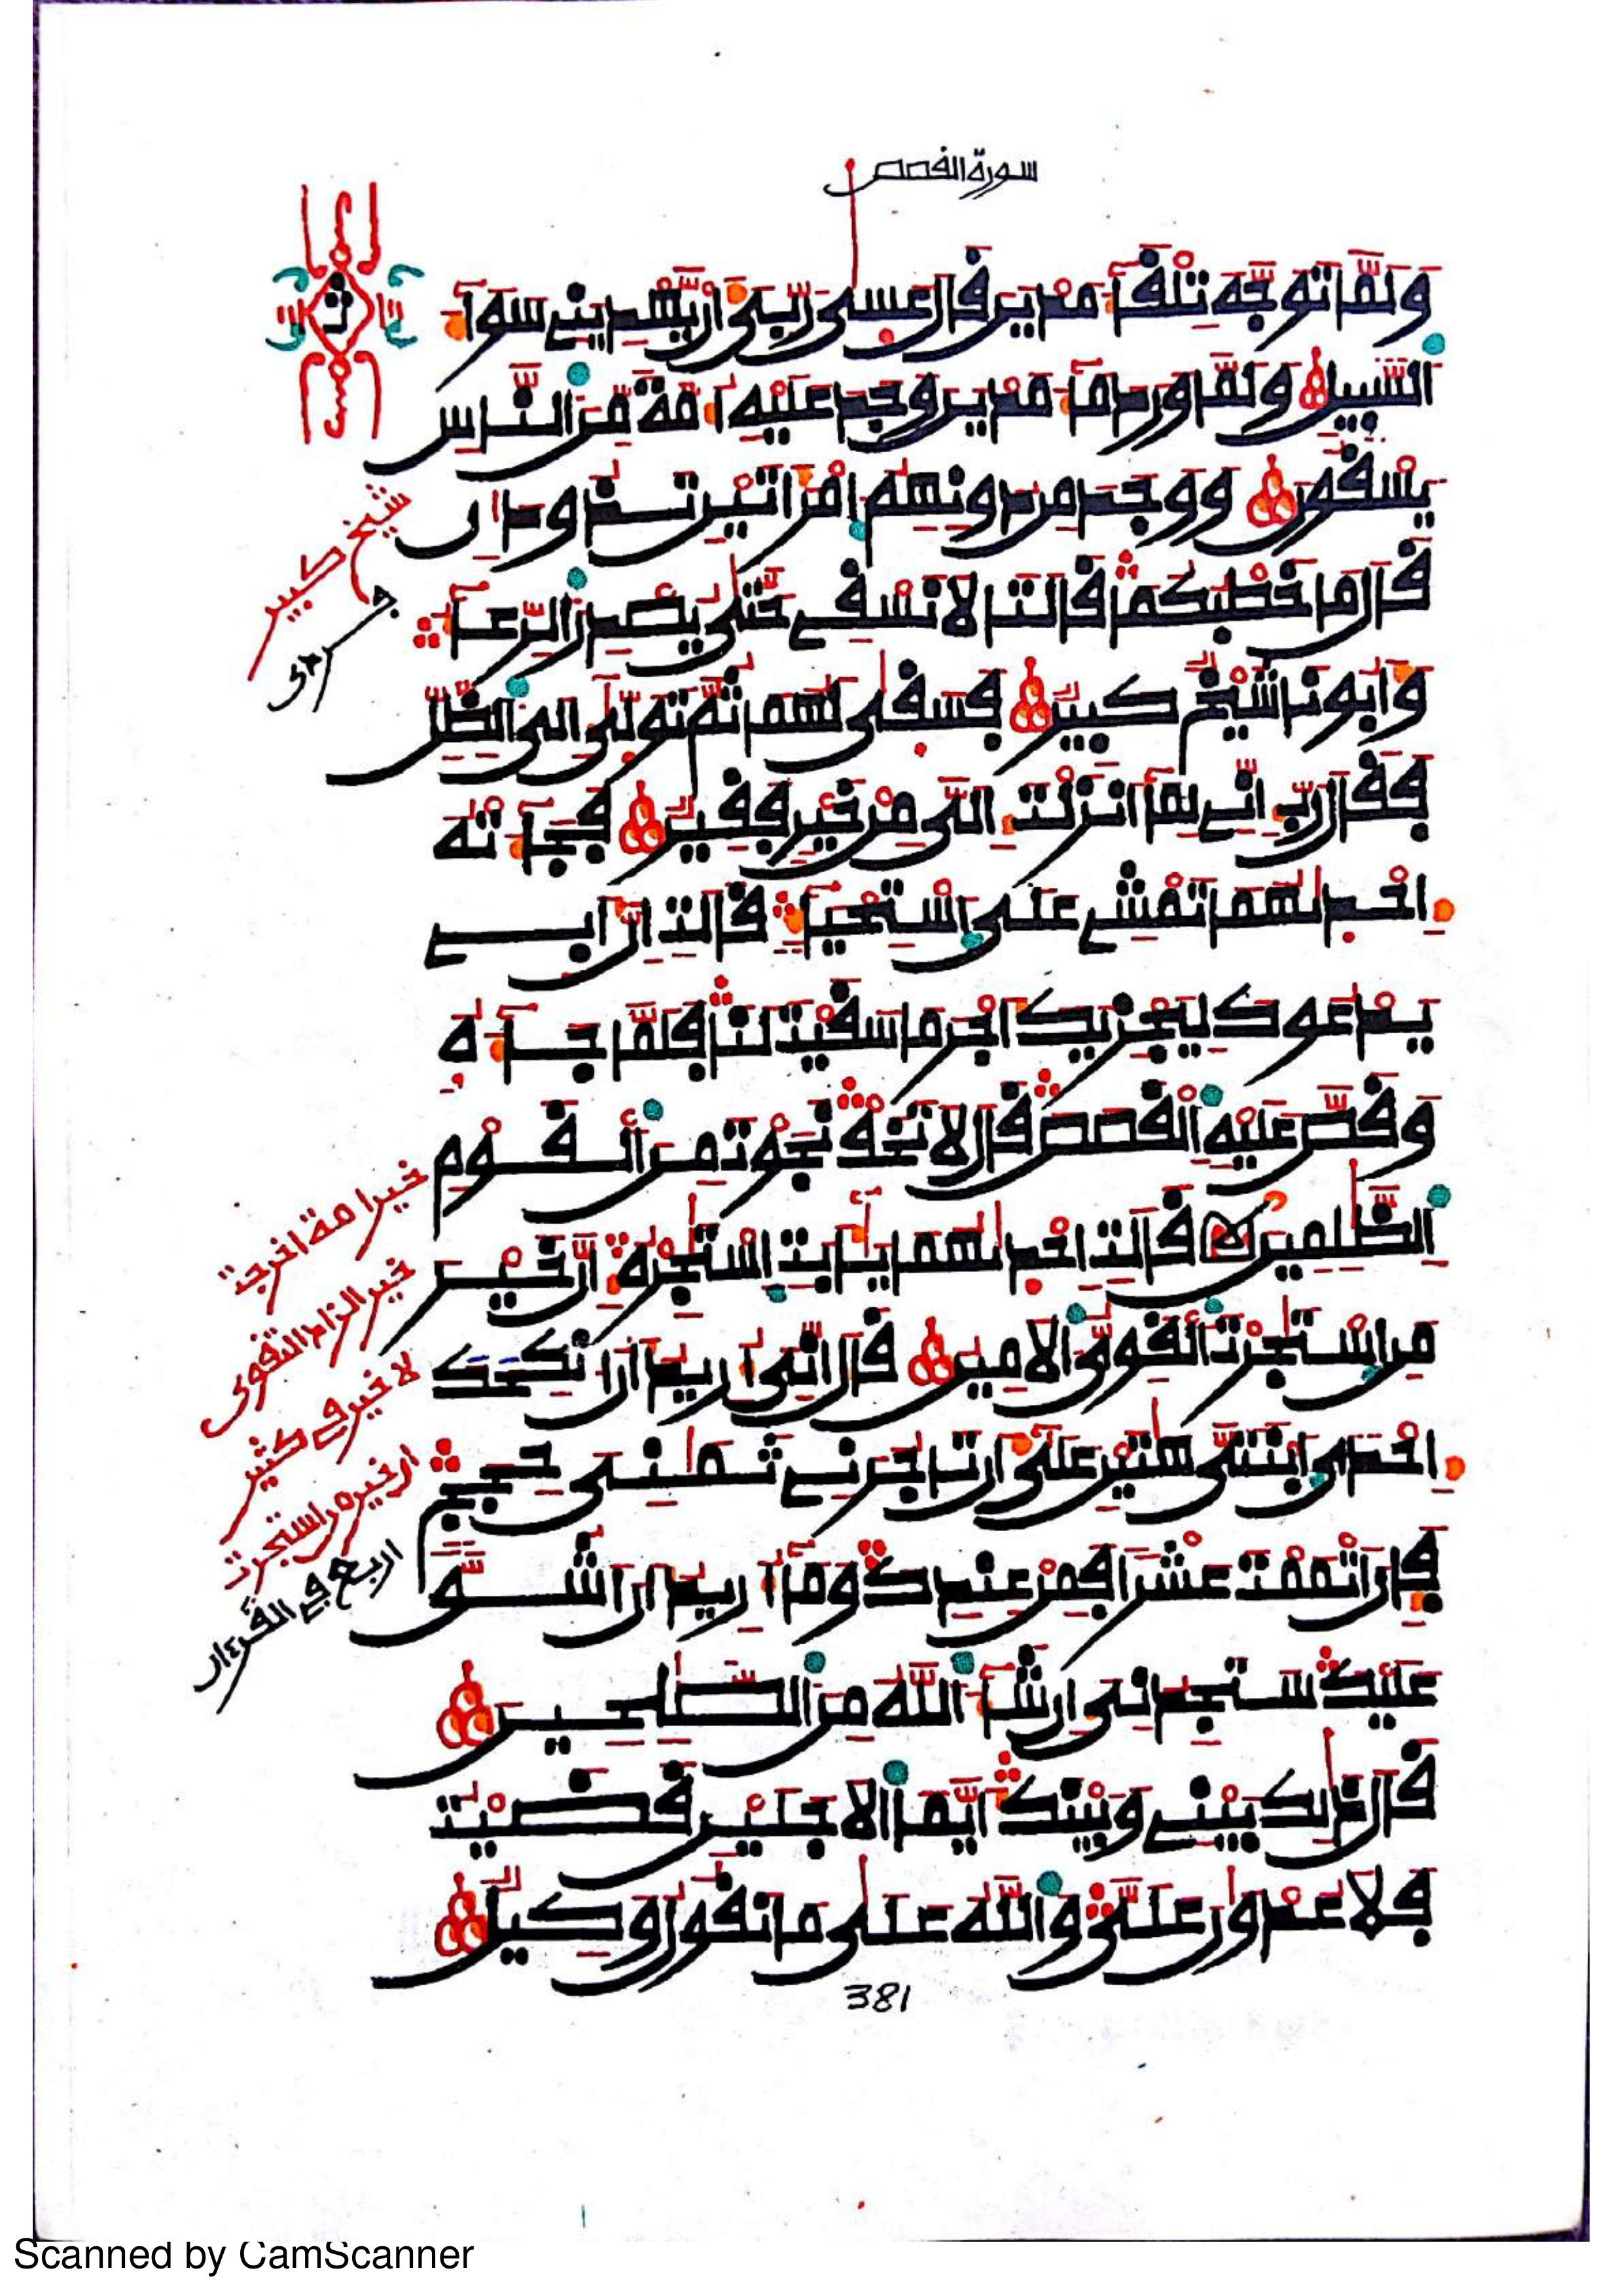 سورة القصص
ولما توجه تلقآء مدين قال عسى ربي أن يهديني سوآء
السبيل ولما ورد مآء مدين وجد عليه أمة من الناس
يسقون ووجد من دونهم امرأتين تذودان
قال ما خطبكما قالتا لا نسقي حتى يصدر الرعآء
وأبونا شيخ كبير فسقى لهما ثم تولى إلى الظل
فقال رب إني لمآ أنزلت إلي من خير فقير فجآءته
إحدىهما تمشي على استحيآء قالت إن أبي
يدعوك ليجزيك أجر ما سقيت لنا فلما جآءه
وقص عليه القصص قال لا تخف نجوت من القوم
الظلمين قالت إحدىهما يأبت استجره إن خير
من استجرت القوي الأمين قال إني أريد أن أنكحك
إحدى ابنتي هتين على أن تأجرني ثمني حجج
فإن أتممت عشرا فمن عندك ومآ أريد أن أشق
عليك ستجدني إن شآء الله من الصلحين
قال ذلك بيني وبينك أيما الأجلين قضيت
فلا عدون علي والله على ما نقول وكيل
شيخ كبير
خير امة اخرجت
خير الزاد التقوى
لا خير في كثير
ان خير من استجرت
اربع في القرءان
381
Scanned by CamScanner